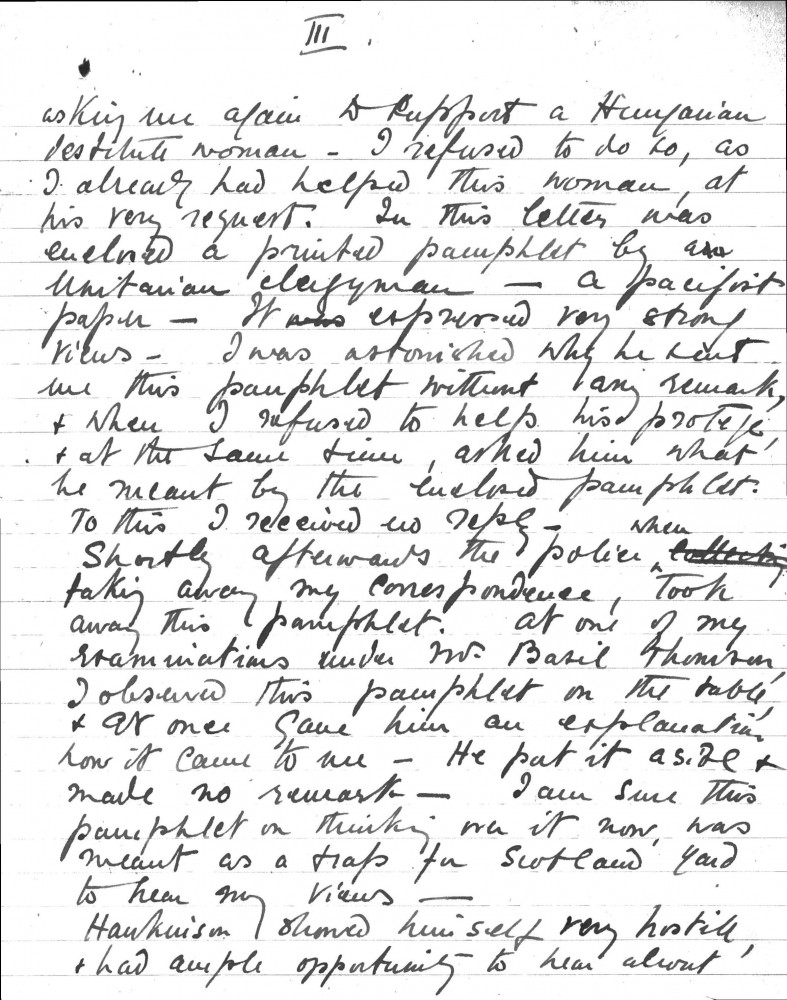 III.
asking me again to support a Hungarian
destitute woman - I refused to do so, as
I already had helped this woman, at
his very request. In this letter was
enclosed a printed pamphlet by an
Unitarian clergyman - a pacifist
paper - It was expressed very strong
views - I was astonished why he sent
me this pamphlet without any remark,
+ when I refused to help his protegé,
+ at the same time, asked him what
he meant by the enclosed pamphlet.
To this I received no reply -
Shortly afterwards the police, when
taking away my correspondence, took
away this pamphlet. At one of my
examinations under Mr. Basil Thomson,
I observed this pamphlet on the table,
+ at once gave him an explanation
how it came to me - He put it aside +
made no remark - I am sure this
pamphlet on thinking over it now, was
meant as a trap for Scotland Yard
to hear my views -
showed himself very hostile,
+ had ample opportunity to hear about